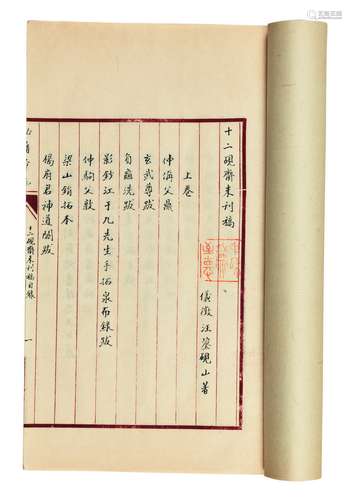 十二硯齋未刊稿
儀徵汪鋆硯山著
上卷
仲偁父鼎
玄武尊跋
負龜洗跋
影鈔江于九先生手拓泉布錄跋
仲駒父敦
梁山鋗拓本
楊府君神道闕跋
十二硯齋未刊稿目錄
一